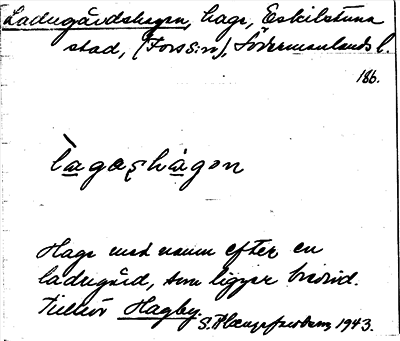 Ladugårdshagen, hage, Eskilstuna
stad, (Forss:n), Södermanlands l.
186.
lagaşhàgan
Hage med namn efter en
ladugård, som ligger bredvid.
Tillhör Hagby.
S. 1943.